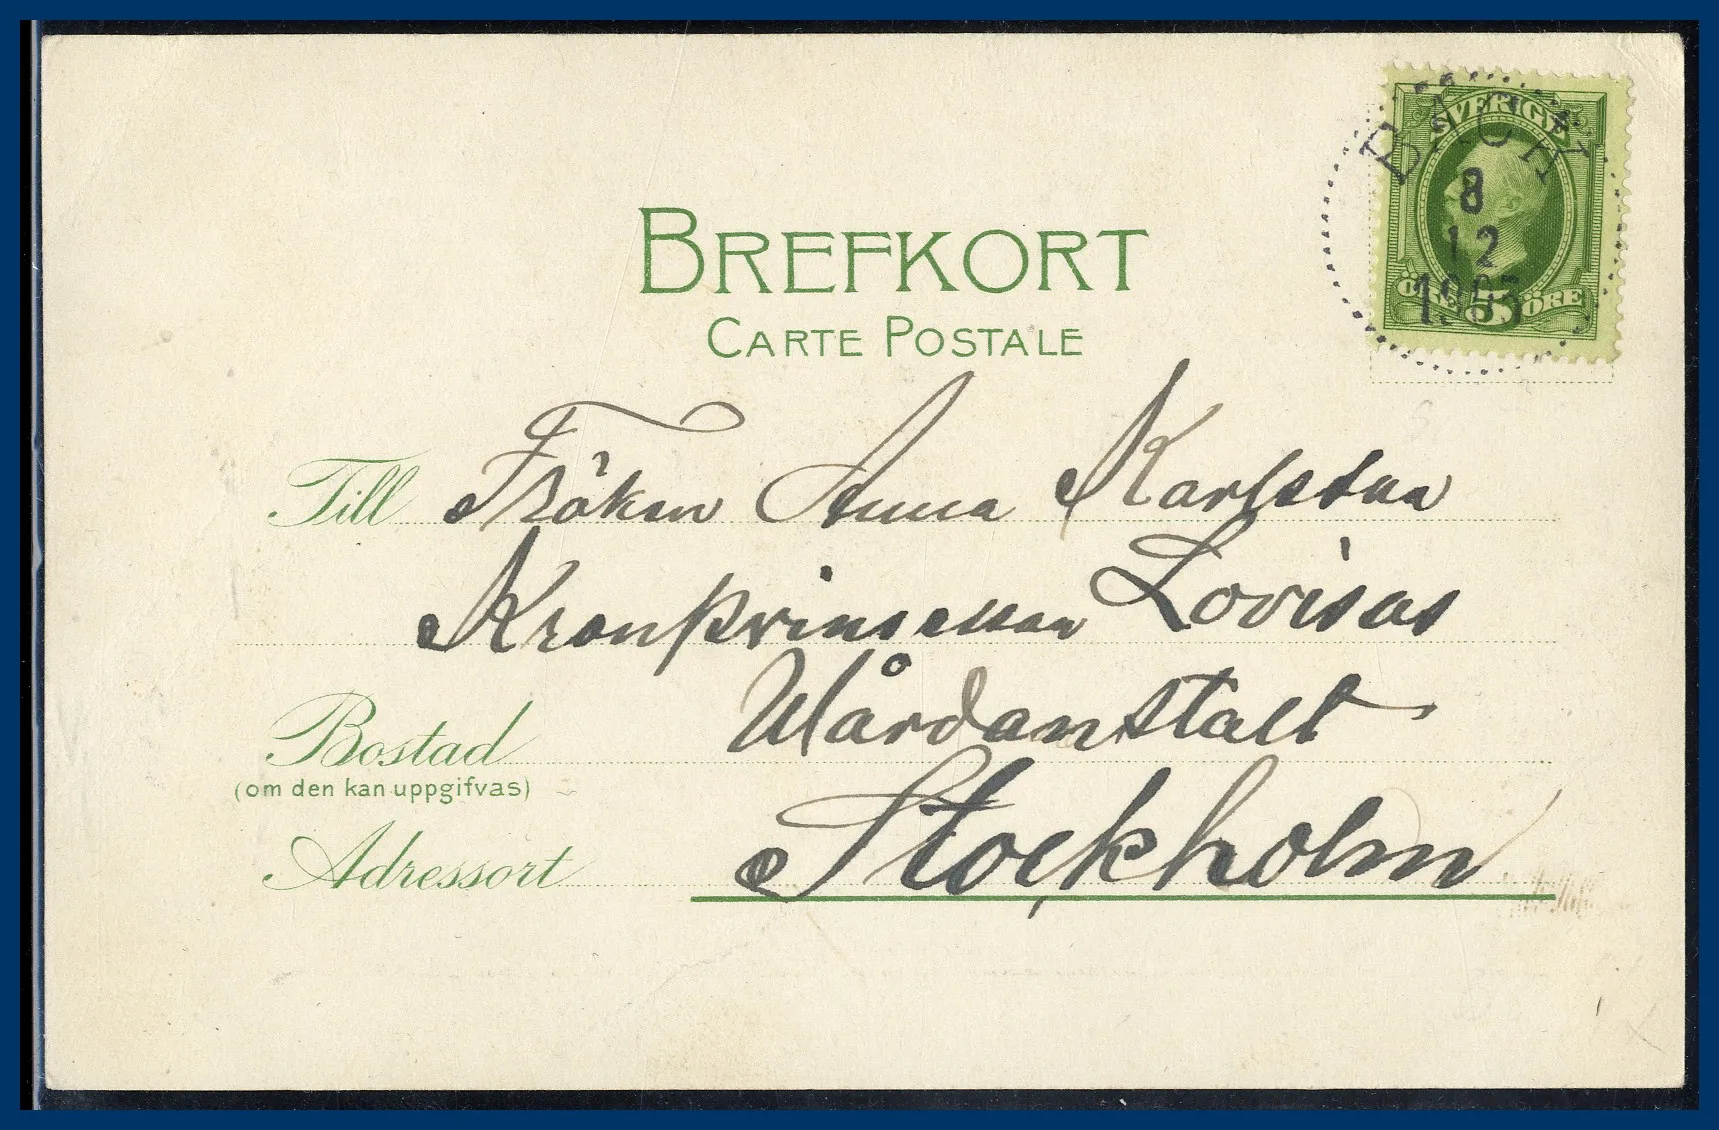 SVERIGE
BACK
8
12
1905
ÖRE 5 ÖRE
BREFKORT
CARTE POSTALE
Till Fröken Anna Karlsson
Kronprinsessan Lovisas
Wårdanstalt
Bostad
(om den kan uppgifvas)
Adressort Stockholm